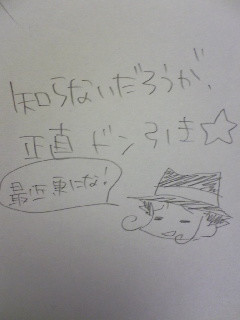 知らないだろうが、
正直 ドン引き☆
最近 更にな!